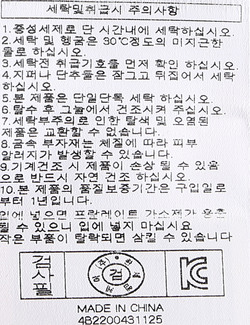 세탁및취급시 주의사항
1.중성세제로 단 시간내에 세탁하십시오.
2.세탁 및 헹굼은 30℃정도의 미지근한
물로 하십시오.
3.세탁전 취급기호를 먼저 확인 하십시오
4.지퍼나 단추등은 잠그고 뒤집어서 세탁
하십시오.
5.본 제품은 단일단독 세탁 하십시오.
6.탈수 후 그늘에서 건조시켜 주십시오.
7.세탁부주의로 인한 탈색 및 오염된
제품은 교환할 수 없습니다.
8.금속 부자재는 체질에 따라 피부
알러지가 발생할 수 있습니다.
9.기계건조시 제품이 손상 될 수 있음
으로 반드시 자연 건조 하십시오.
10.본 제품의 품질보증기간은 구입일로
부터 1년입니다.
입에 넣으면 프탈레이트 가소제가 용출
될 수 있으니 입에 넣지 마십시요
작은 부품이 탈락되면 삼킬 수 있습니다
검사필 검 KC
MADE IN CHINA
4B2200431125